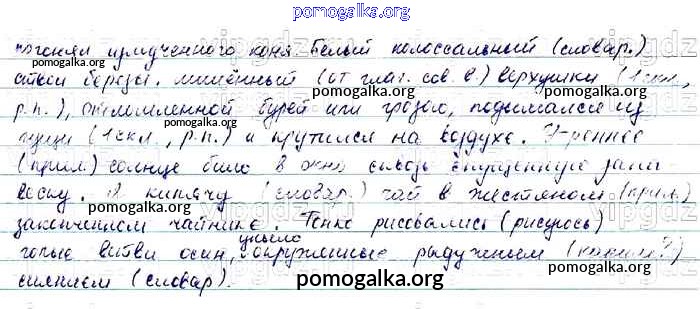 pomogalka.org
погонял измученного коня. Белый колоссальный (словар.)
ствол березы, лишённый (от глаг. сов. в.) верхушки (1 скл.,
р.п.), отломленной бурей или грозою, подымался из
гущи (1 скл., р.п.) и крутился на воздухе. Утреннее
(прил.) солнце било в окно сквозь спущенную зана-
веску. Я кипячу (словар.) чай в жестяном (прил.)
закопченном чайнике. Тонко рисовались (рисуюсь)
голые ветви осин, уныло окруженные радужным (каким?)
сиянием (словар).
pomogalka.org
pomogalka.org
pomogalka.org
pomogalka.org
pomogalka.org
pomogalka.org
pomogalka.org
pomogalka.org